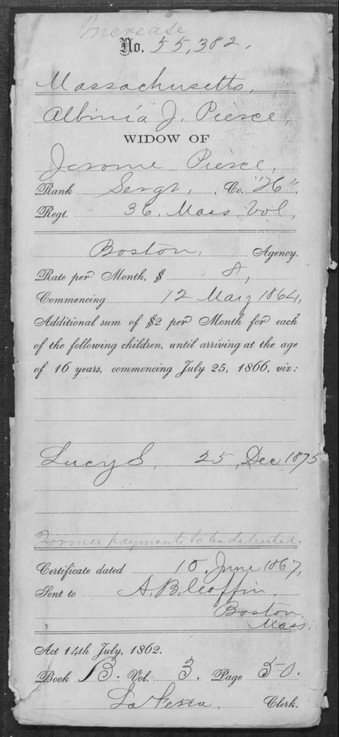 Increase
No. 55,382,
Massachusetts,
Albinia J. Pierce,
WIDOW OF
Jerome Pierce,
Rank Sergt, Co. "H"
Regt. 36. Mass Vol,
Boston, Agency.
Rate per Month, $ 8,
Commencing 12 May 1864,
Additional sum of $2 per Month for each
of the following children, until arriving at the age
of 16 years, commencing July 25, 1866, viz:
Lucy S, 25 Dec 1875
Former payments to be deducted.
Certificate dated 10 June 1867,
Sent to A. B. Coffin.
Boston
Mass.
Act 14th July, 1862.
Book B. Vol. 3. Page 50.
Clerk.